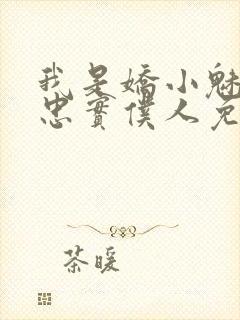 我是嬌小魅
忠實僕人免
茶暖